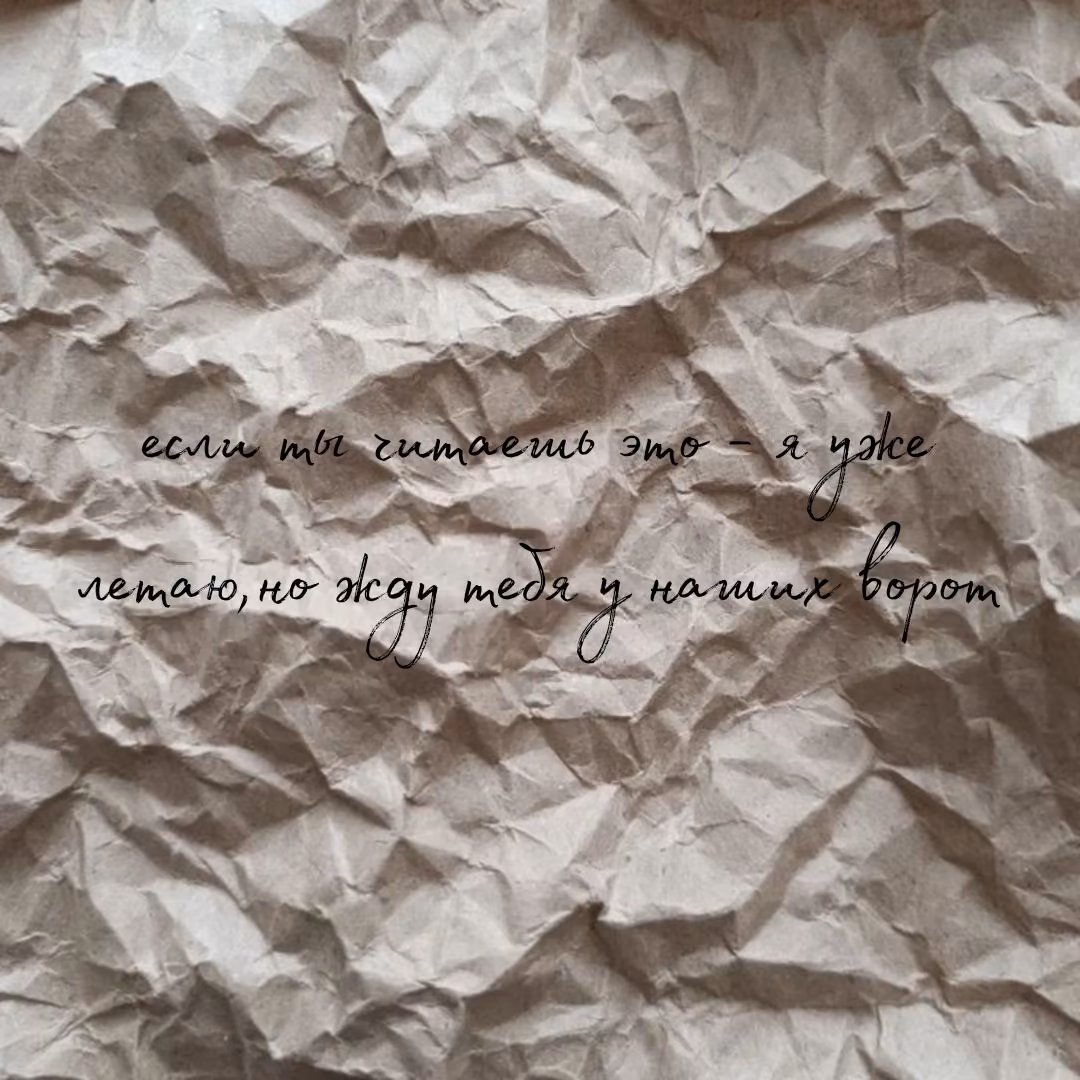 если ты читаешь это - я уже
летаю,но жду тебя у наших ворот